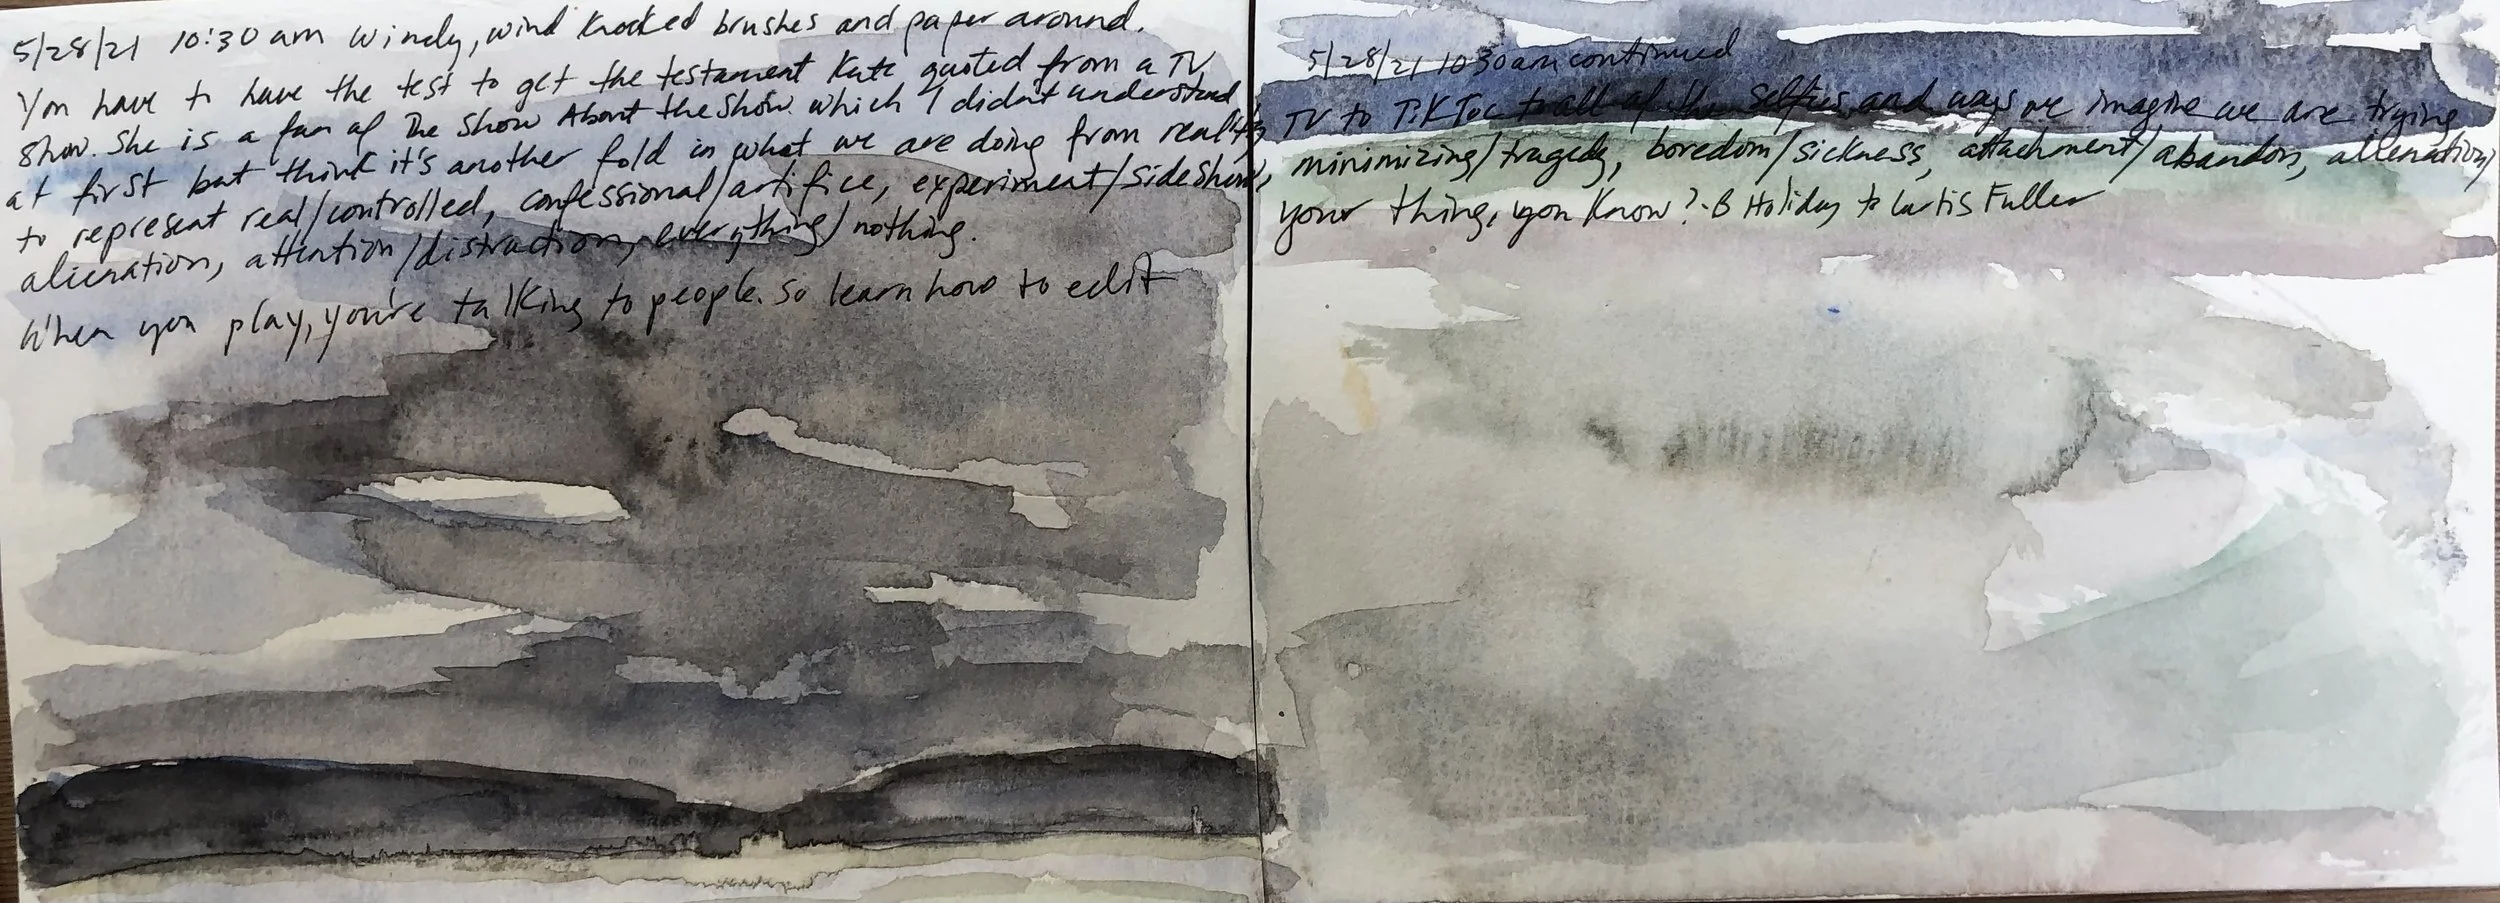 5/28/21 10:30 am Windy, wind knocked brushes and paper around.
You have to have the test to get the testament Kate quoted from a TV
show. She is a fan of The Show About the Show. which I didn't understand
at first but think it's another fold in what we are doing from reality
to represent real/controlled, confessional/artifice, experiment/sideshow,
alienation, attention/distraction, everything/nothing.
When you play, you're talking to people. So learn how to edit
5/28/21 10 30am continued
TV to TikToc to all of the selfies and ways we imagine we are trying
minimizing/tragedy, boredom/sickness, attachment/abandon, alienation/
your thing, you know? -B Holiday to Curtis Fuller